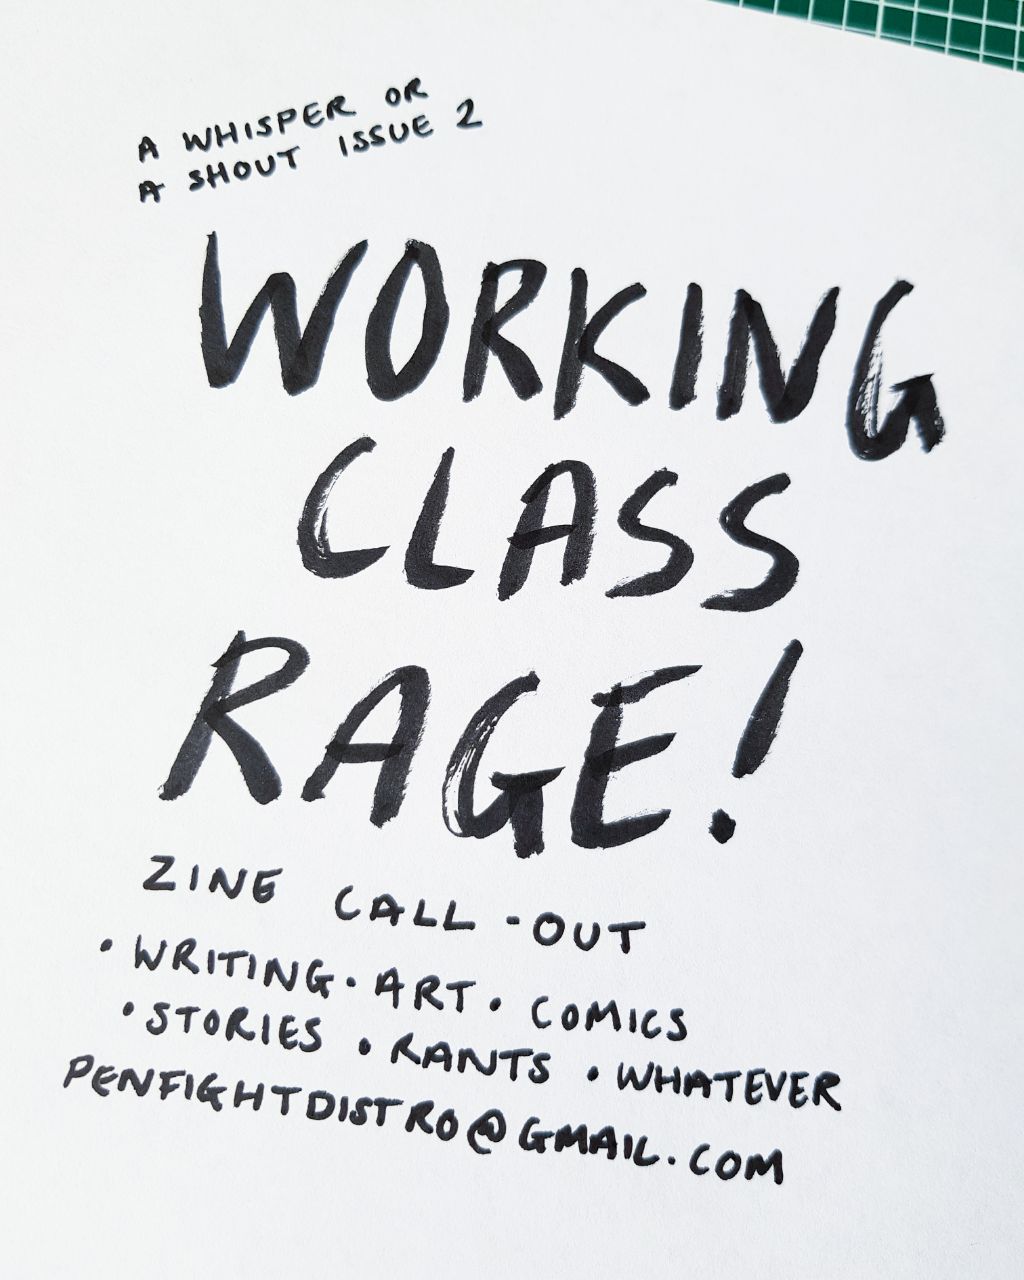 A WHISPER OR
A SHOUT ISSUE 2
WORKING
CLASS
RAGE!
ZINE CALL-OUT
• WRITING • ART • COMICS
• STORIES • RANTS • WHATEVER
PENFIGHTDISTRO@GMAIL.COM